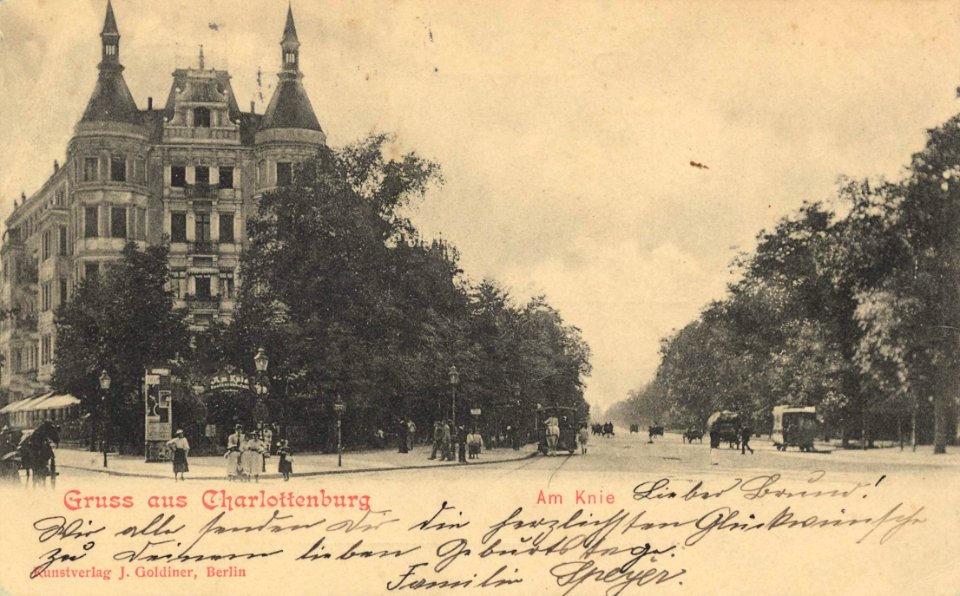 Am Knie
Gruss aus Charlottenburg
Am Knie
Lieber Bruno!
Wir alle senden Dir die herzlichsten Glückwünsche
zu Deinem lieben Geburtstage.
Familie Speyer.
Kunstverlag J. Goldiner, Berlin